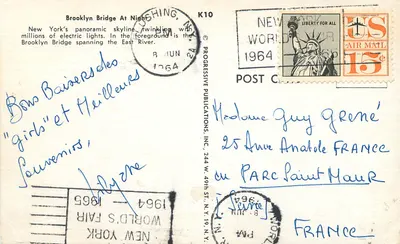 Brooklyn Bridge At Night
K10
New York's panoramic skyline, twinkling with
millions of electric lights. In the foreground is the
Brooklyn Bridge spanning the East River.
FLUSHING, N.Y.
JUN
1964
NEW YORK
WORLD'S FAIR
1964
LIBERTY FOR ALL
US
AIR MAIL
15¢
POST C
© PROGRESSIVE PUBLICATIONS, INC., 244 W. 49th ST. N.Y. 19, N.Y.
Bons Baisers des
"girls" et Meilleurs
Souvenirs,
Madame Guy
25 Ave Anatole FRANCE
au PARC Saint Maur
(Seine)
FRANCE
NEW YORK
WORLD'S FAIR
1964-1965
PM
JUN